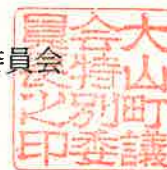 委員会
大山町議
会特別委
員長之印